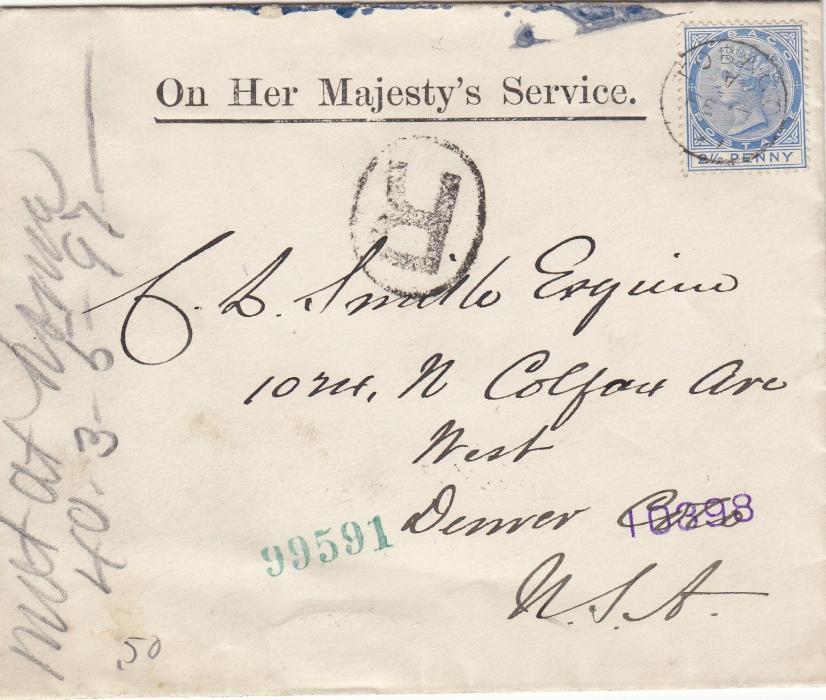 On Her Majesty's Service.
TOBAGO
POSTAGE
2½ PENNY
R
C. L. Smith Esquire
1024, N Colfax Ave
West
Denver Colo
10898
99591
U. S. A.
Not at home
40. 3-5-97
50